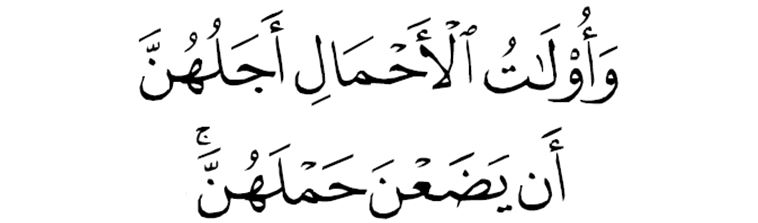 وَأُوْلَٰتُ ٱلْأَحْمَالِ أَجَلُهُنَّ
أَن يَضَعْنَ حَمْلَهُنَّۚ